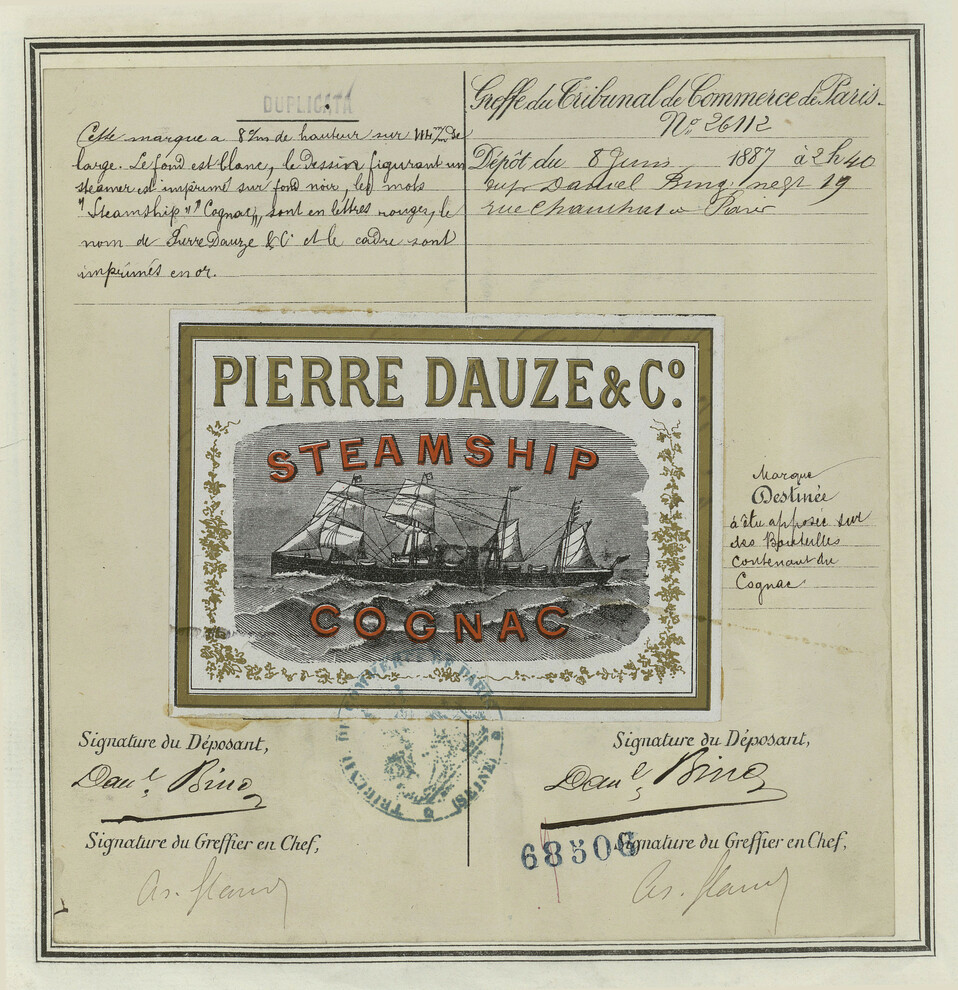 DUPLICATA
Cette marque a 8 c/m de hauteur sur 114 m/m de
large. Le fond est blanc, le dessin figurant un
steamer est imprimé sur fond noir, les mots
"Steamship" "Cognac", sont en lettres rouges, le
nom de Pierre Dauze & C° et le cadre sont
imprimés en or.
Greffe du Tribunal de Commerce de Paris.
N° 26112
Dépôt du 8 Juin 1887 à 2h40
par Daniel Bing, négt 19
rue Chauchat à Paris
PIERRE DAUZE & Co.
STEAMSHIP
COGNAC
Marque
Destinée
à être apposée sur
des Bouteilles
contenant du
Cognac
TRIBUNAL DE COMMERCE DE PARIS
(SEINE)
Signature du Déposant,
Danl. Bing
Signature du Greffier en Chef,
Signature du Déposant,
Danl. Bing
68506
Signature du Greffier en Chef,